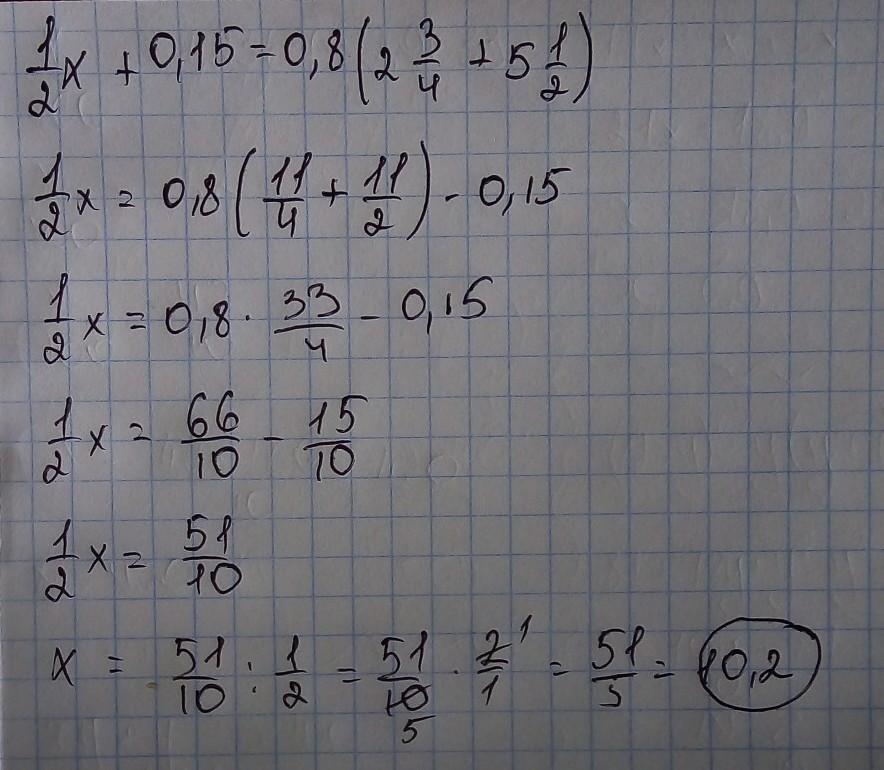 1/2 x + 0,15 = 0,8 (2 3/4 + 5 1/2)
1/2 x = 0,8 (11/4 + 11/2) - 0,15
1/2 x = 0,8 · 33/4 - 0,15
1/2 x = 66/10 - 15/10
1/2 x = 51/10
x = 51/10 : 1/2 = 51/10 5 · 2 1/1 = 51/5 = 10,2